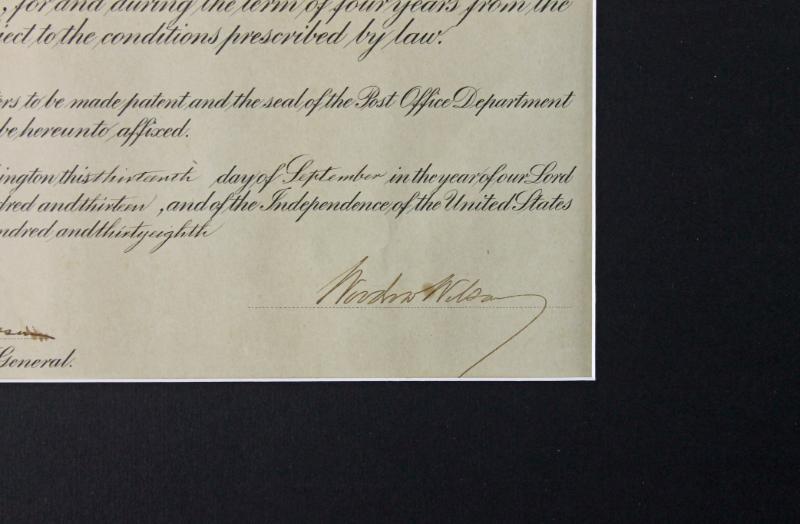 , for and during the term of four years from the
ject to the conditions prescribed by law.
ers to be made patent and the seal of the Post Office Department
be hereunto affixed.
ington this thirteenth day of September in the year of our Lord
dred and thirteen, and of the Independence of the United States
ndred and thirty eighth
Woodrow Wilson
General.